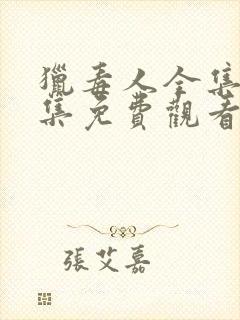 獵毒人全集
集免費觀看
張艾嘉